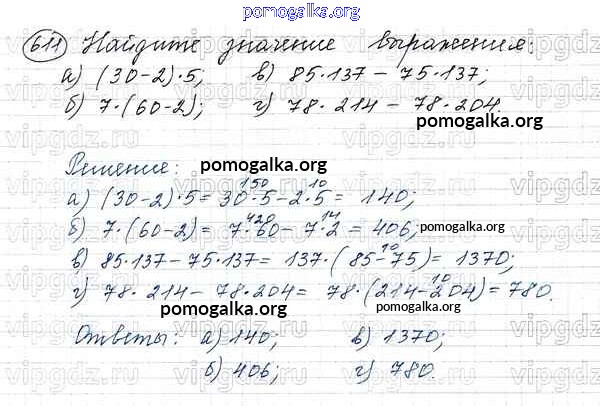 pomogalka.org
611 Найдите значение выражения:
а) (30-2)·5; в) 85·137 - 75·137;
б) 7·(60-2); г) 78·214 - 78·204.
pomogalka.org
Решение: pomogalka.org
150 10
а) (30-2)·5 = 30·5 - 2·5 = 140;
420 14
б) 7·(60-2) = 7·60 - 7·2 = 406; pomogalka.org
10
в) 85·137 - 75·137 = 137·(85-75) = 1370;
10
г) 78·214 - 78·204 = 78·(214-204) = 780.
pomogalka.org
Ответы: а) 140; в) 1370;
б) 406; г) 780.
pomogalka.org
vipgdz.ru